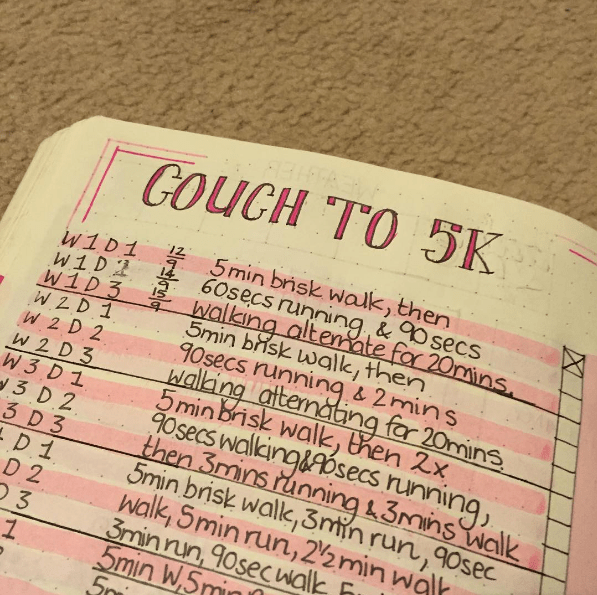 COUCH TO 5K
W1D1 12/9 5min brisk walk, then
W1D2 14/9 60secs running, & 90secs
W1D3 15/9 walking alternate for 20mins.
W2D1 5min brisk walk, then
W2D2 90secs running & 2mins
W2D3 walking alternating for 20mins.
W3D1 5min brisk walk, then 2x
W3D2 90secs walking&90secs running,
3D3 then 3mins running & 3mins walk
D1 5min brisk walk, 3min run, 90sec
D2 walk, 5min run, 2½min walk
D3 3min run, 90sec walk
1 5min W, 5min